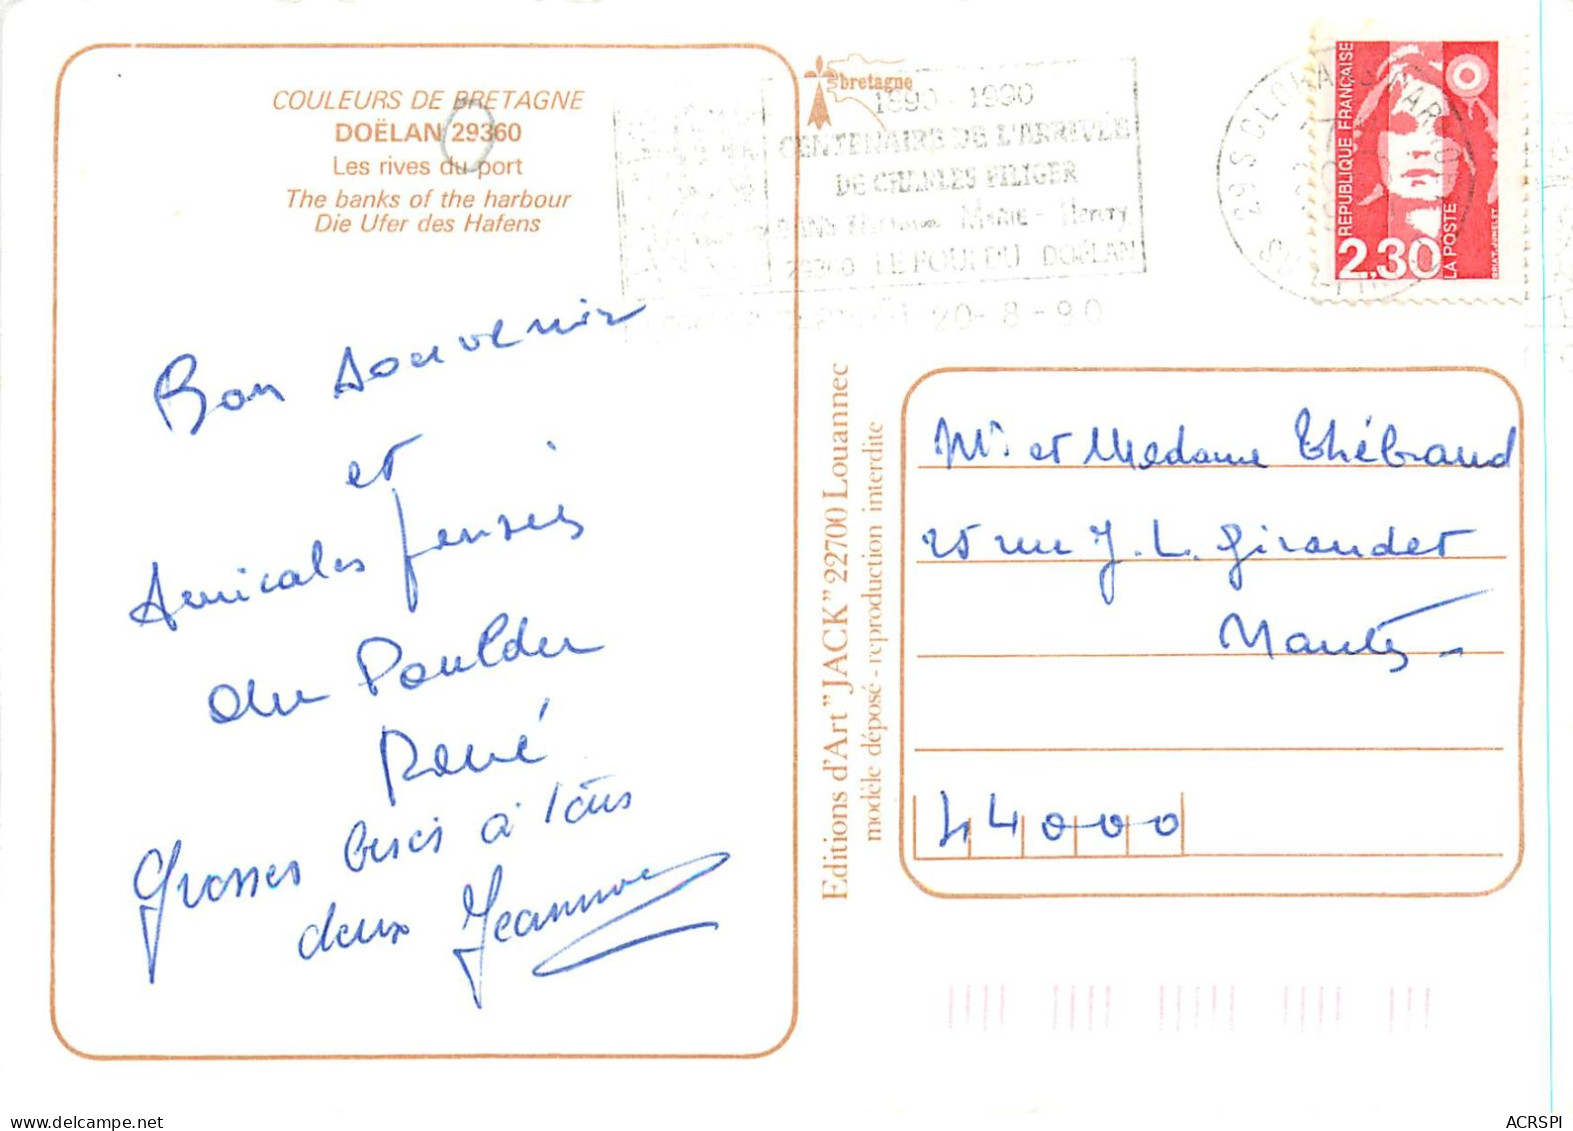 COULEURS DE BRETAGNE
DOËLAN 29360
Les rives du port
The banks of the harbour
Die Ufer des Hafens
Bon souvenir
et
Amicales pensées
du Pouldu
René
Grosses bises à tous
deux Jeannine
bretagne
1890 - 1990
CENTENAIRE DE L'ARRIVÉE
DE CHARLES FILIGER
DANS Marie - Henry
29360 LE POULDU DOËLAN
20-8-90
REPUBLIQUE FRANÇAISE
2,30
LA POSTE
BRIAT-JUMELET
Editions d'Art "JACK" 22700 Louannec
modèle déposé - reproduction interdite
Mr et Madame Thébaud
25 rue J. L. Giraudet
Nantes
44000
ACRSPI